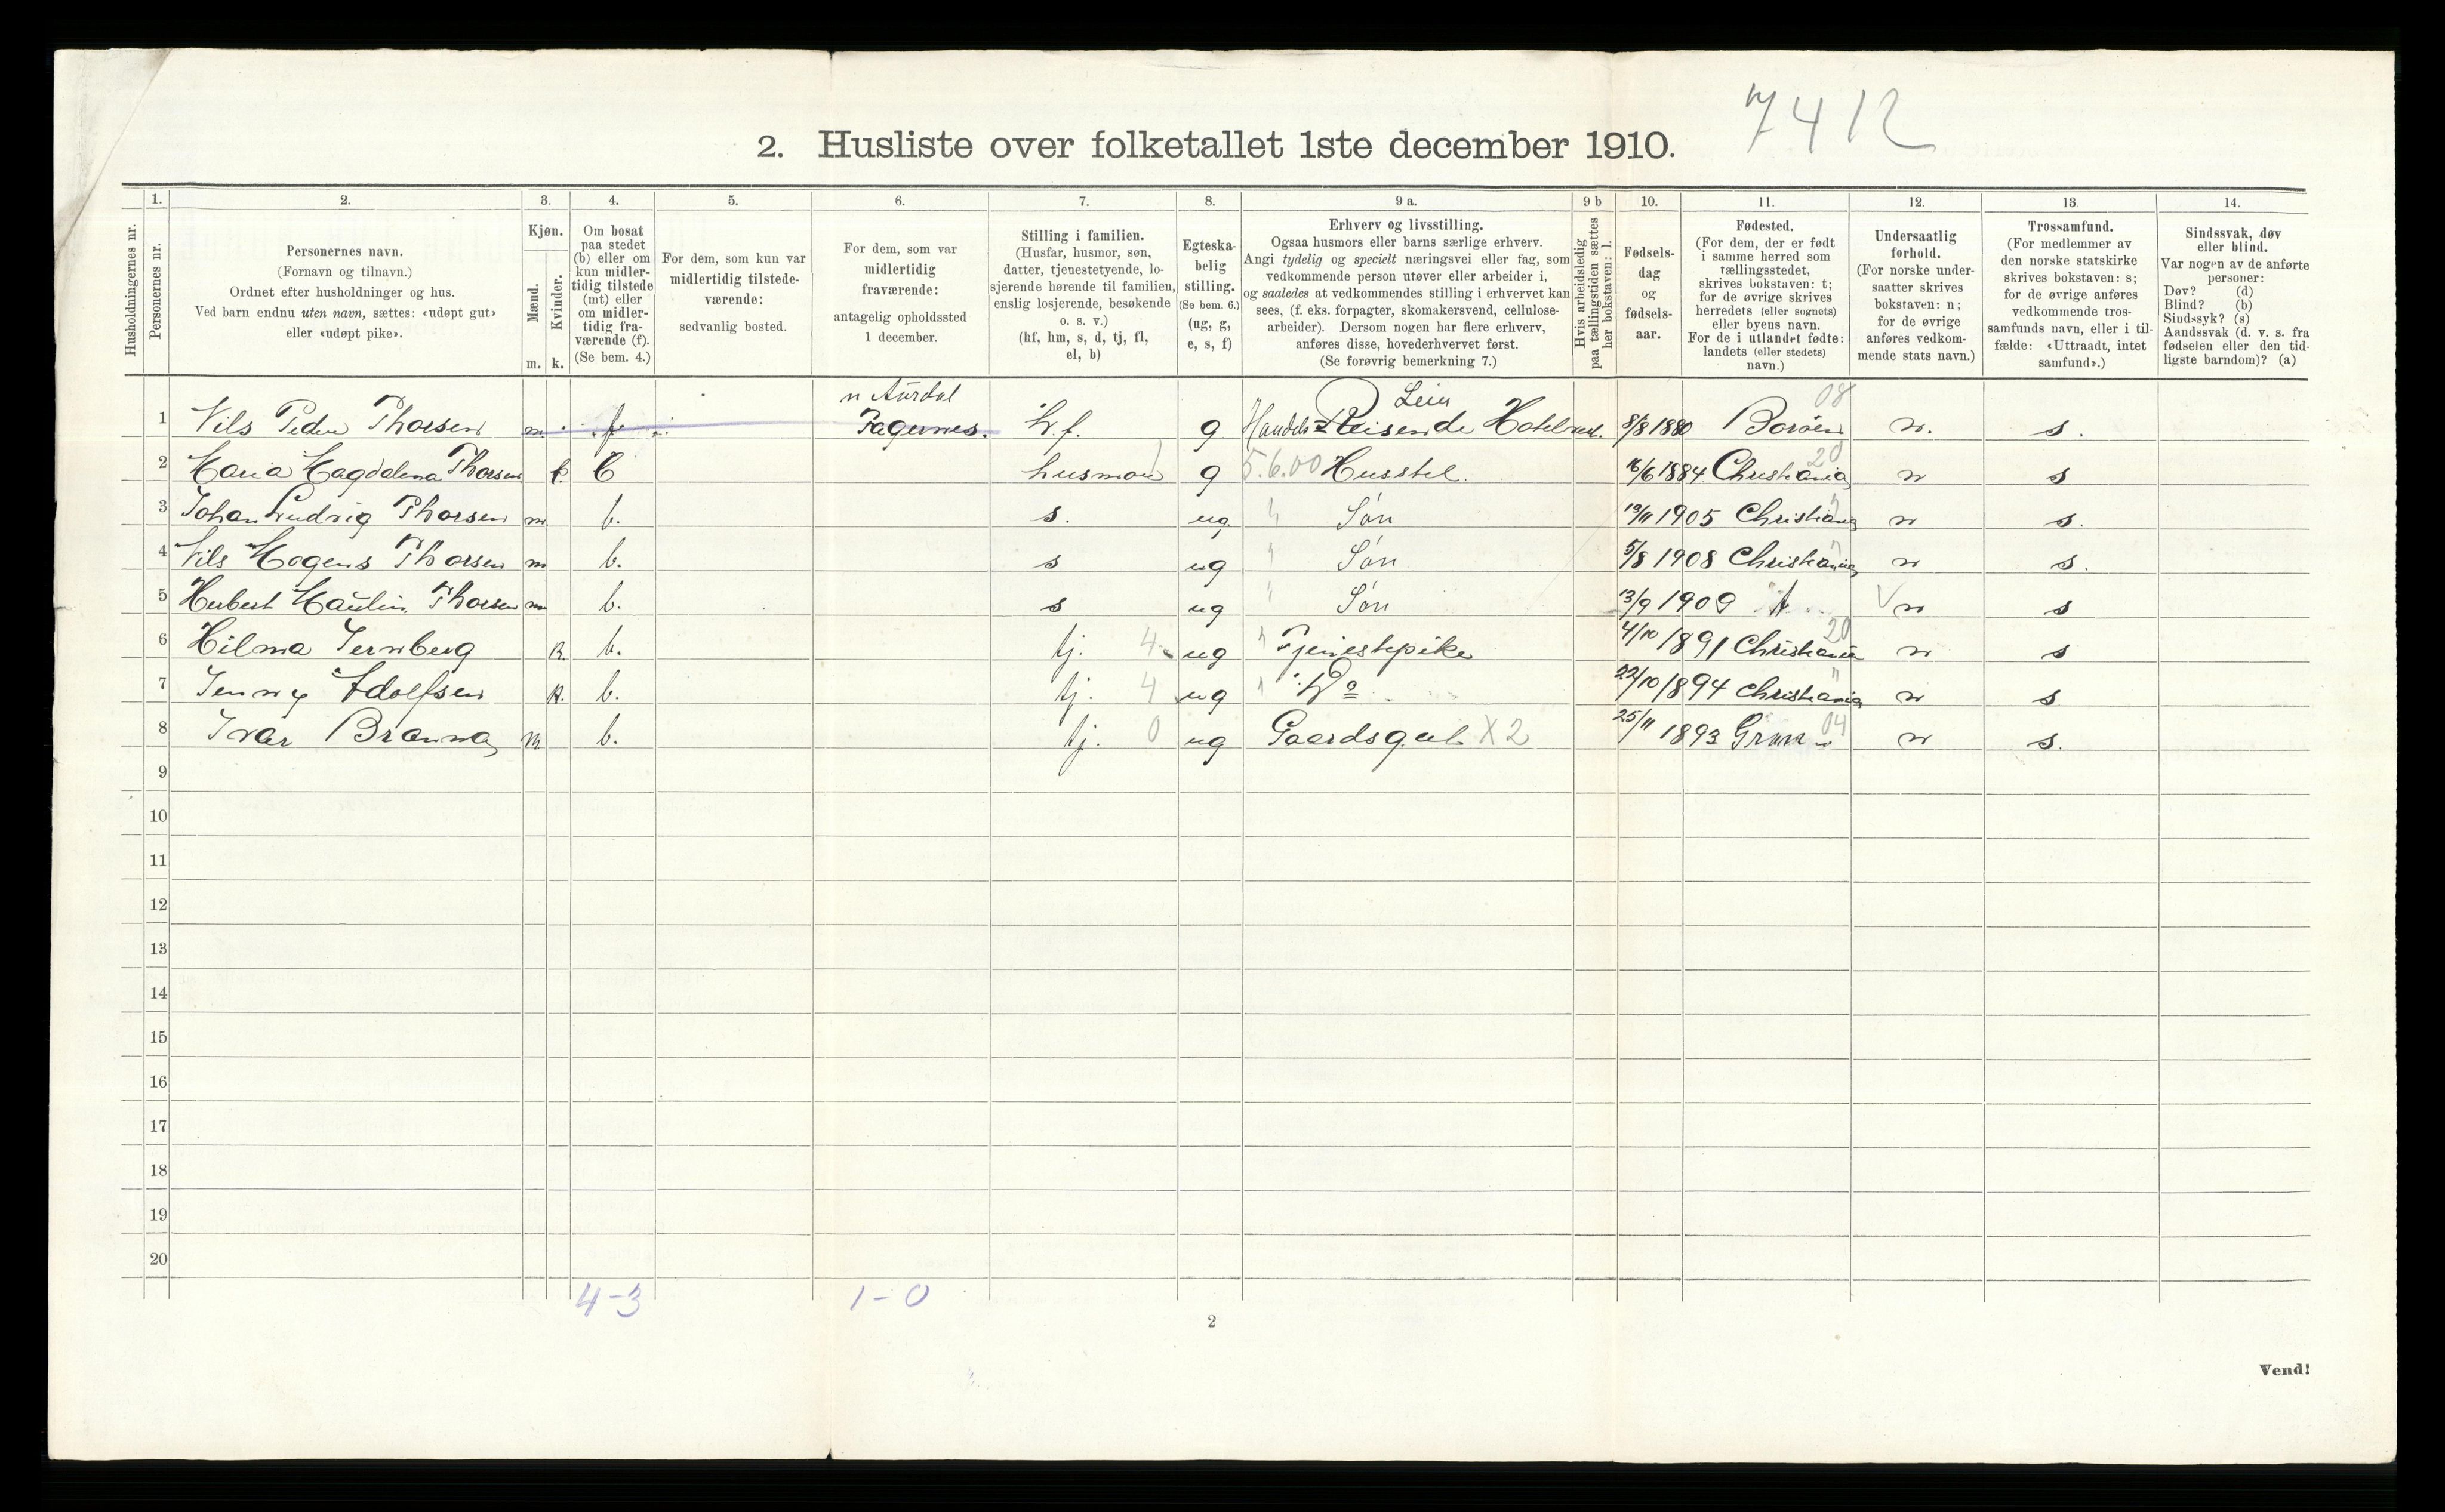 7412
2. Husliste over folketallet 1ste december 1910.
Husholdningernes nr.
1.
Personernes nr.
2.
Personernes navn.
(Fornavn og tilnavn.)
Ordnet efter husholdninger og hus.
Ved barn endnu uten navn, sættes: «udøpt gut»
eller «udøpt pike».
3.
Kjøn.
Mænd.
m.
Kvinder.
k.
4.
Om bosat
paa stedet
(b) eller om
kun midler-
tidig tilstede
(mt) eller
om midler-
tidig fra-
værende (f).
(Se bem. 4.)
5.
For dem, som kun var
midlertidig tilstede-
værende:
sedvanlig bosted.
6.
For dem, som var
midlertidig
fraværende:
antagelig opholdssted
1 december.
7.
Stilling i familien.
(Husfar, husmor, søn,
datter, tjenestetyende, lo-
sjerende hørende til familien,
enslig losjerende, besøkende
o. s. v.)
(hf, hm, s, d, tj, fl,
el, b)
8.
Egteska-
belig
stilling.
(Se bem. 6.)
(ug, g,
e, s, f)
9 a.
Erhverv og livsstilling.
Ogsaa husmors eller barns særlige erhverv.
Angi tydelig og specielt næringsvei eller fag, som
vedkommende person utøver eller arbeider i,
og saaledes at vedkommendes stilling i erhvervet kan
sees, (f. eks. forpagter, skomakersvend, cellulose-
arbeider). Dersom nogen har flere erhverv,
anføres disse, hovederhvervet først.
(Se forøvrig bemerkning 7.)
9 b
Hvis arbeidsledig
paa tællingstiden sættes
her bokstaven: l.
10.
Fødsels-
dag
og
fødsels-
aar.
11.
Fødested.
(For dem, der er født
i samme herred som
tællingsstedet,
skrives bokstaven: t;
for de øvrige skrives
herredets (eller sognets)
eller byens navn.
For de i utlandet fødte:
landets (eller stedets)
navn.)
12.
Undersaatlig
forhold.
(For norske under-
saatter skrives
bokstaven: n;
for de øvrige
anføres vedkom-
mende stats navn.)
13
Trossamfund.
(For medlemmer av
den norske statskirke
skrives bokstaven: s;
for de øvrige anføres
vedkommende tros-
samfunds navn, eller i til-
fælde: «Uttraadt, intet
samfund».)
14.
Sindssvak, døv
eller blind.
Var nogen av de anførte
personer:
Døv? (d)
Blind? (b)
Sindssyk? (s)
Aandssvak (d. v. s. fra
fødselen eller den tid-
ligste barndom)? (a)
n Aurdal Leier 08
1 Nils Peder Thorsen m. f Fagernes. h.f. g Handels Reisende Hotel 8/8 1880 n. s.
2 Maria Magdalena Thorsen k. b husmor g 5.6.00 Husstel. 16/6 1884 Christiania 20 n s
3 Johan Ludvig Thorsen m b. s. ug Søn 19/11 1905 Christiania n s.
4 Nils Mogens Thorsen m b. s ug Søn 5/8 1908 Christiania n s.
5 Herbert Thorsen m b. s ug Søn 13/9 1909 t V n s
6 Hilma Jernberg k. b. tj. 4 ug Tjenestepike 4/10 1891 Christiania 20 n s
7 Jenny Adolfsen k. b. tj. 4 ug Do 22/10 1894 Christiania n s
8 Ivar m b. tj. 0 ug Gaardsgut X2 25/11 1893 04 n s.
9
10
11
12
13
14
15
16
17
18
19
20
4-3 1-0
2
Vend!